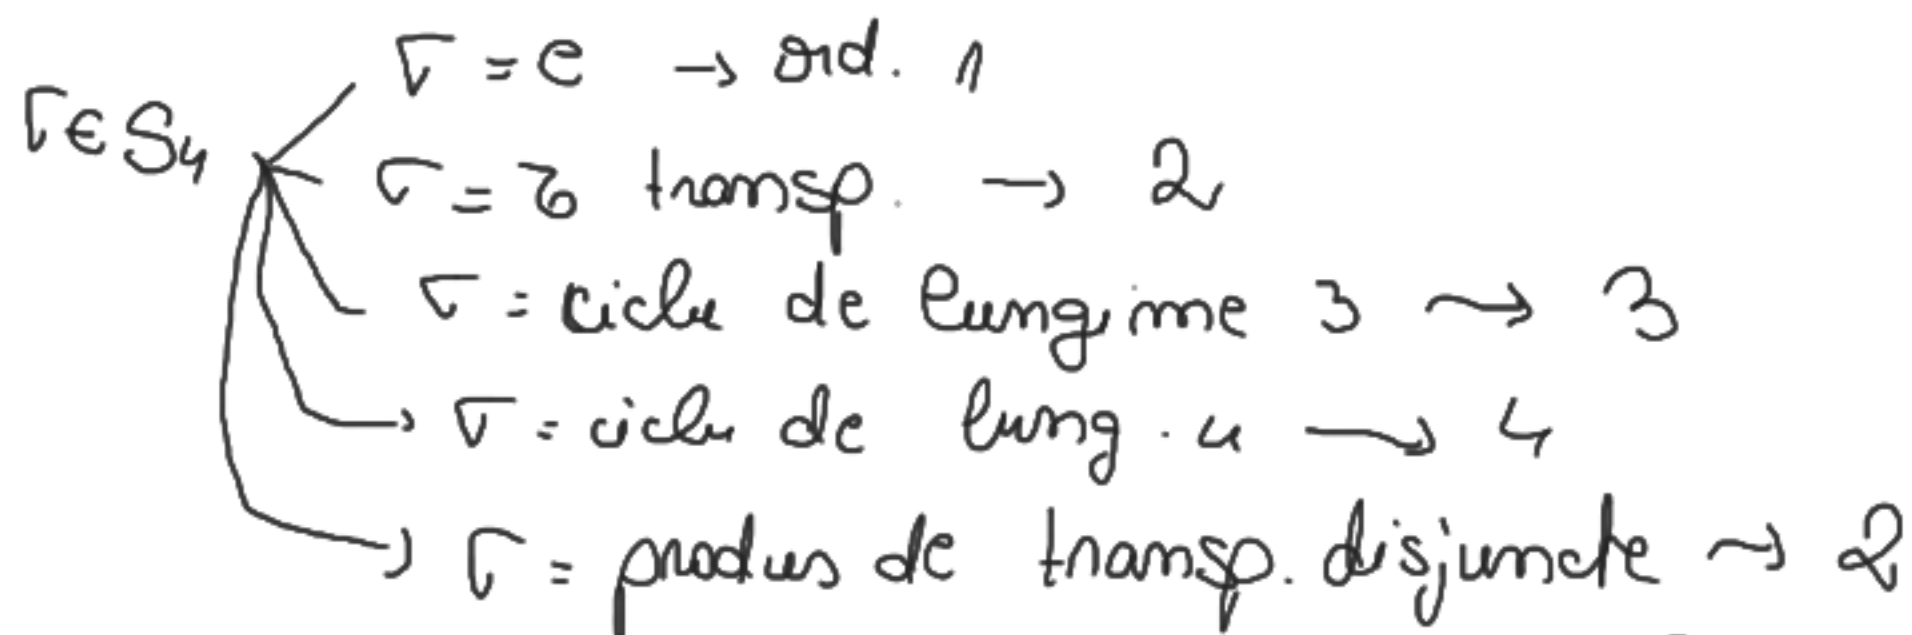 σ = e → ord. 1
σ ∈ S₄
σ = τ transp. → 2
σ = ciclu de lungime 3 → 3
→ σ = ciclu de lung. 4 → 4
→ σ = produs de transp. disjuncte → 2